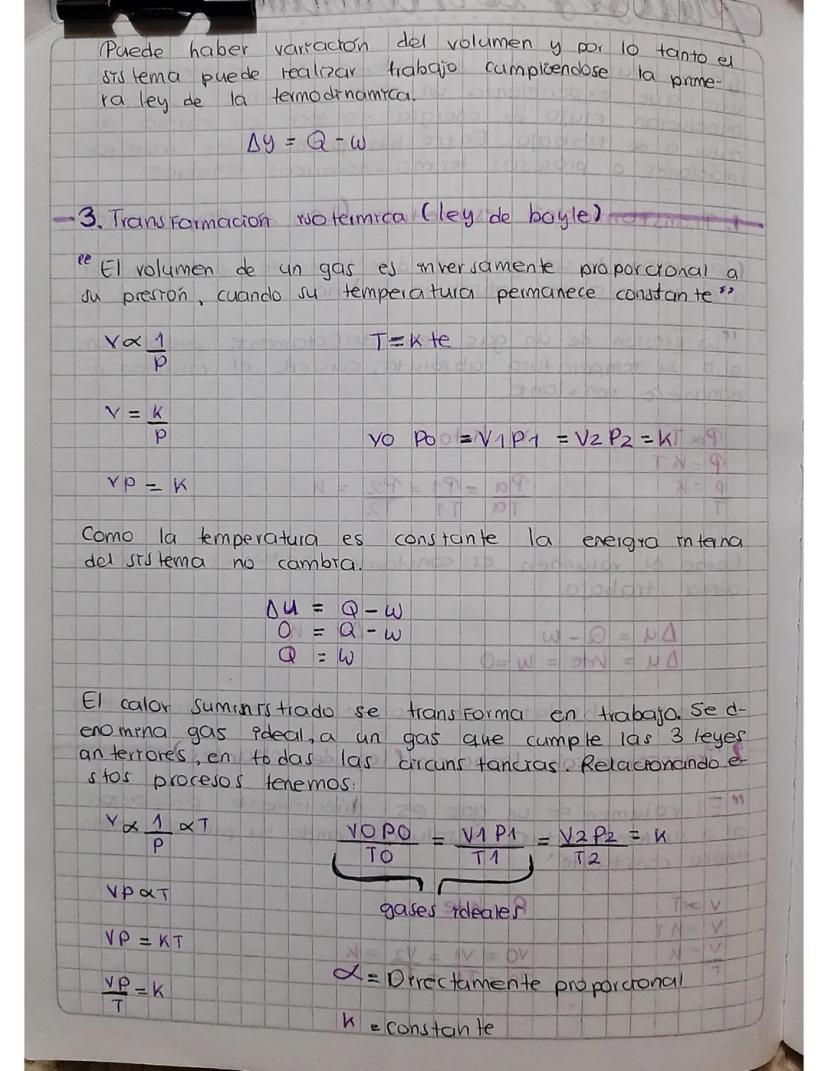 Puede haber variación del volumen y por lo tanto el
sistema puede realizar trabajo cumpliendose la prime-
ra ley de la termodinamica.
Δy = Q - w
-3. Transformación isotermica (ley de boyle)
"El volumen de un gas es inversamente proporcional a
su presión, cuando su temperatura permanece constante"
V ∝ 1/P T = Kte
V = K/P
V0 P0 = V1P1 = V2 P2 = K
VP = K
Como la temperatura es constante la energia interna
del sistema no cambia.
ΔU = Q - w
0 = Q - w
Q = w
El calor suministrado se transforma en trabajo. Se d-
enomina gas ideal, a un gas que cumple las 3 leyes
anteriores, en todas las circunstancias. Relacionando e-
stos procesos tenemos:
V ∝ 1/P ∝ T V0P0/T0 = V1P1/T1 = V2P2/T2 = K
VP ∝ T
gases ideales
VP = KT
∝ = Directamente proporcional
VP/T = K
K = constante